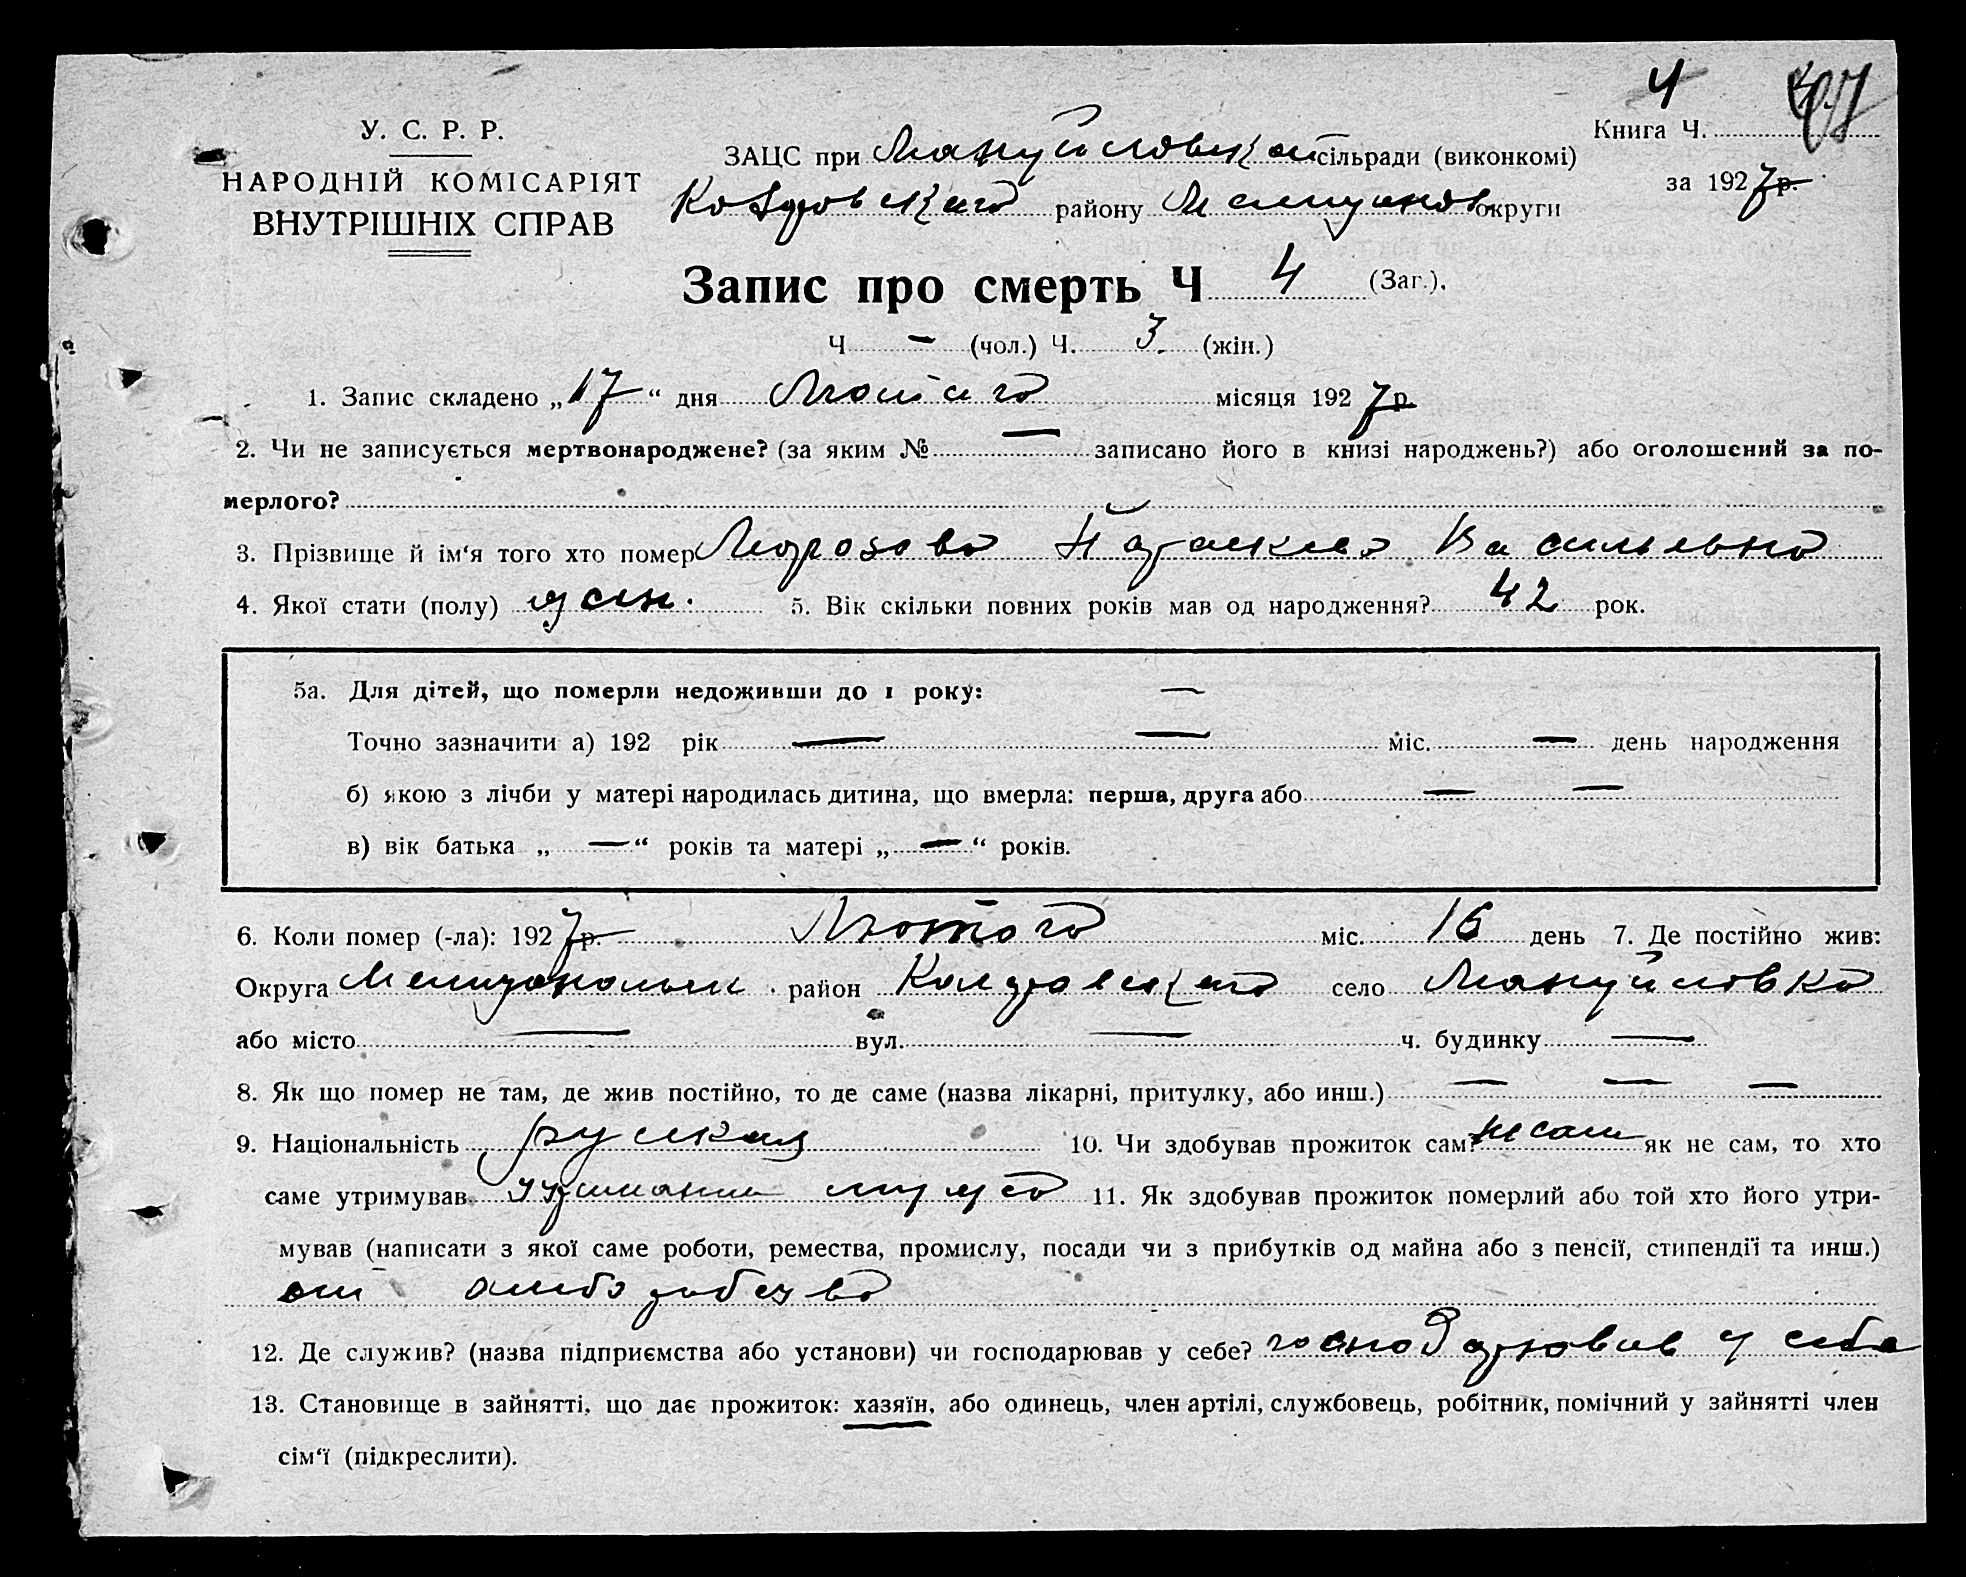 4
У. С. Р. Р.
НАРОДНІЙ КОМІСАРІЯТ
ВНУТРІШНІХ СПРАВ
Книга Ч.
ЗАЦС при Мануйловской сільради (виконкомі)
за 1927 р.
району округи
Запис про смерть Ч 4 (Заг.).
Ч — (чол.) Ч. 3. (жін.)
1. Запис складено „17“ дня Лютаго місяця 1927 р.
2. Чи не записується мертвонароджене? (за яким № — записано його в книзі народжень?) або оголошений за по-
мерлого?
3. Прізвище й ім‘я того хто помер Морозова Параскева Васильевна
4. Якої стати (полу) жен. 5. Вік скільки повних років мав од народження? 42 рок.
5а. Для дітей, що померли недоживши до 1 року: —
Точно зазначити а) 192 рік — — міс. — день народження
б) якою з лічби у матері народилась дитина, що вмерла: перша, друга або — —
в) вік батька „ — “ років та матері „ — “ років.
6. Коли помер (-ла): 1927 р. Лютого міс. 16 день 7. Де постійно жив:
Округа район село Мануйловка
або місто — вул. — ч. будинку —
8. Як що помер не там, де жив постійно, то де саме (назва лікарні, притулку, або инш.) — — —
9. Національність руская 10. Чи здобував прожиток сам? не сам як не сам, то хто
саме утримував 11. Як здобував прожиток померлий або той хто його утри-
мував (написати з якої саме роботи, ремества, промислу, посади чи з прибутків од майна або з пенсії, стипендії та инш.)
12. Де служив? (назва підприємства або установи) чи господарював у себе? господарював у себе
13. Становище в зайнятті, що дає прожиток: хазяїн, або одинець, член артілі, службовець, робітник, помічний у зайнятті член
сім‘ї (підкреслити).